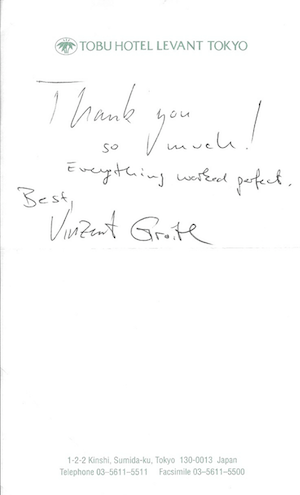 TOBU HOTEL LEVANT TOKYO
Thank you
so much!
Everything worked perfect.
Best,
Vinzent
1-2-2 Kinshi, Sumida-ku, Tokyo 130-0013 Japan
Telephone 03-5611-5511 Facsimile 03-5611-5500